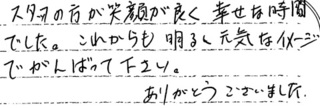 スタッフの方が笑顔が良く 幸せな時間
でした。これからも 明るく元気なイメージ
でがんばって下さい。
ありがとうございました。